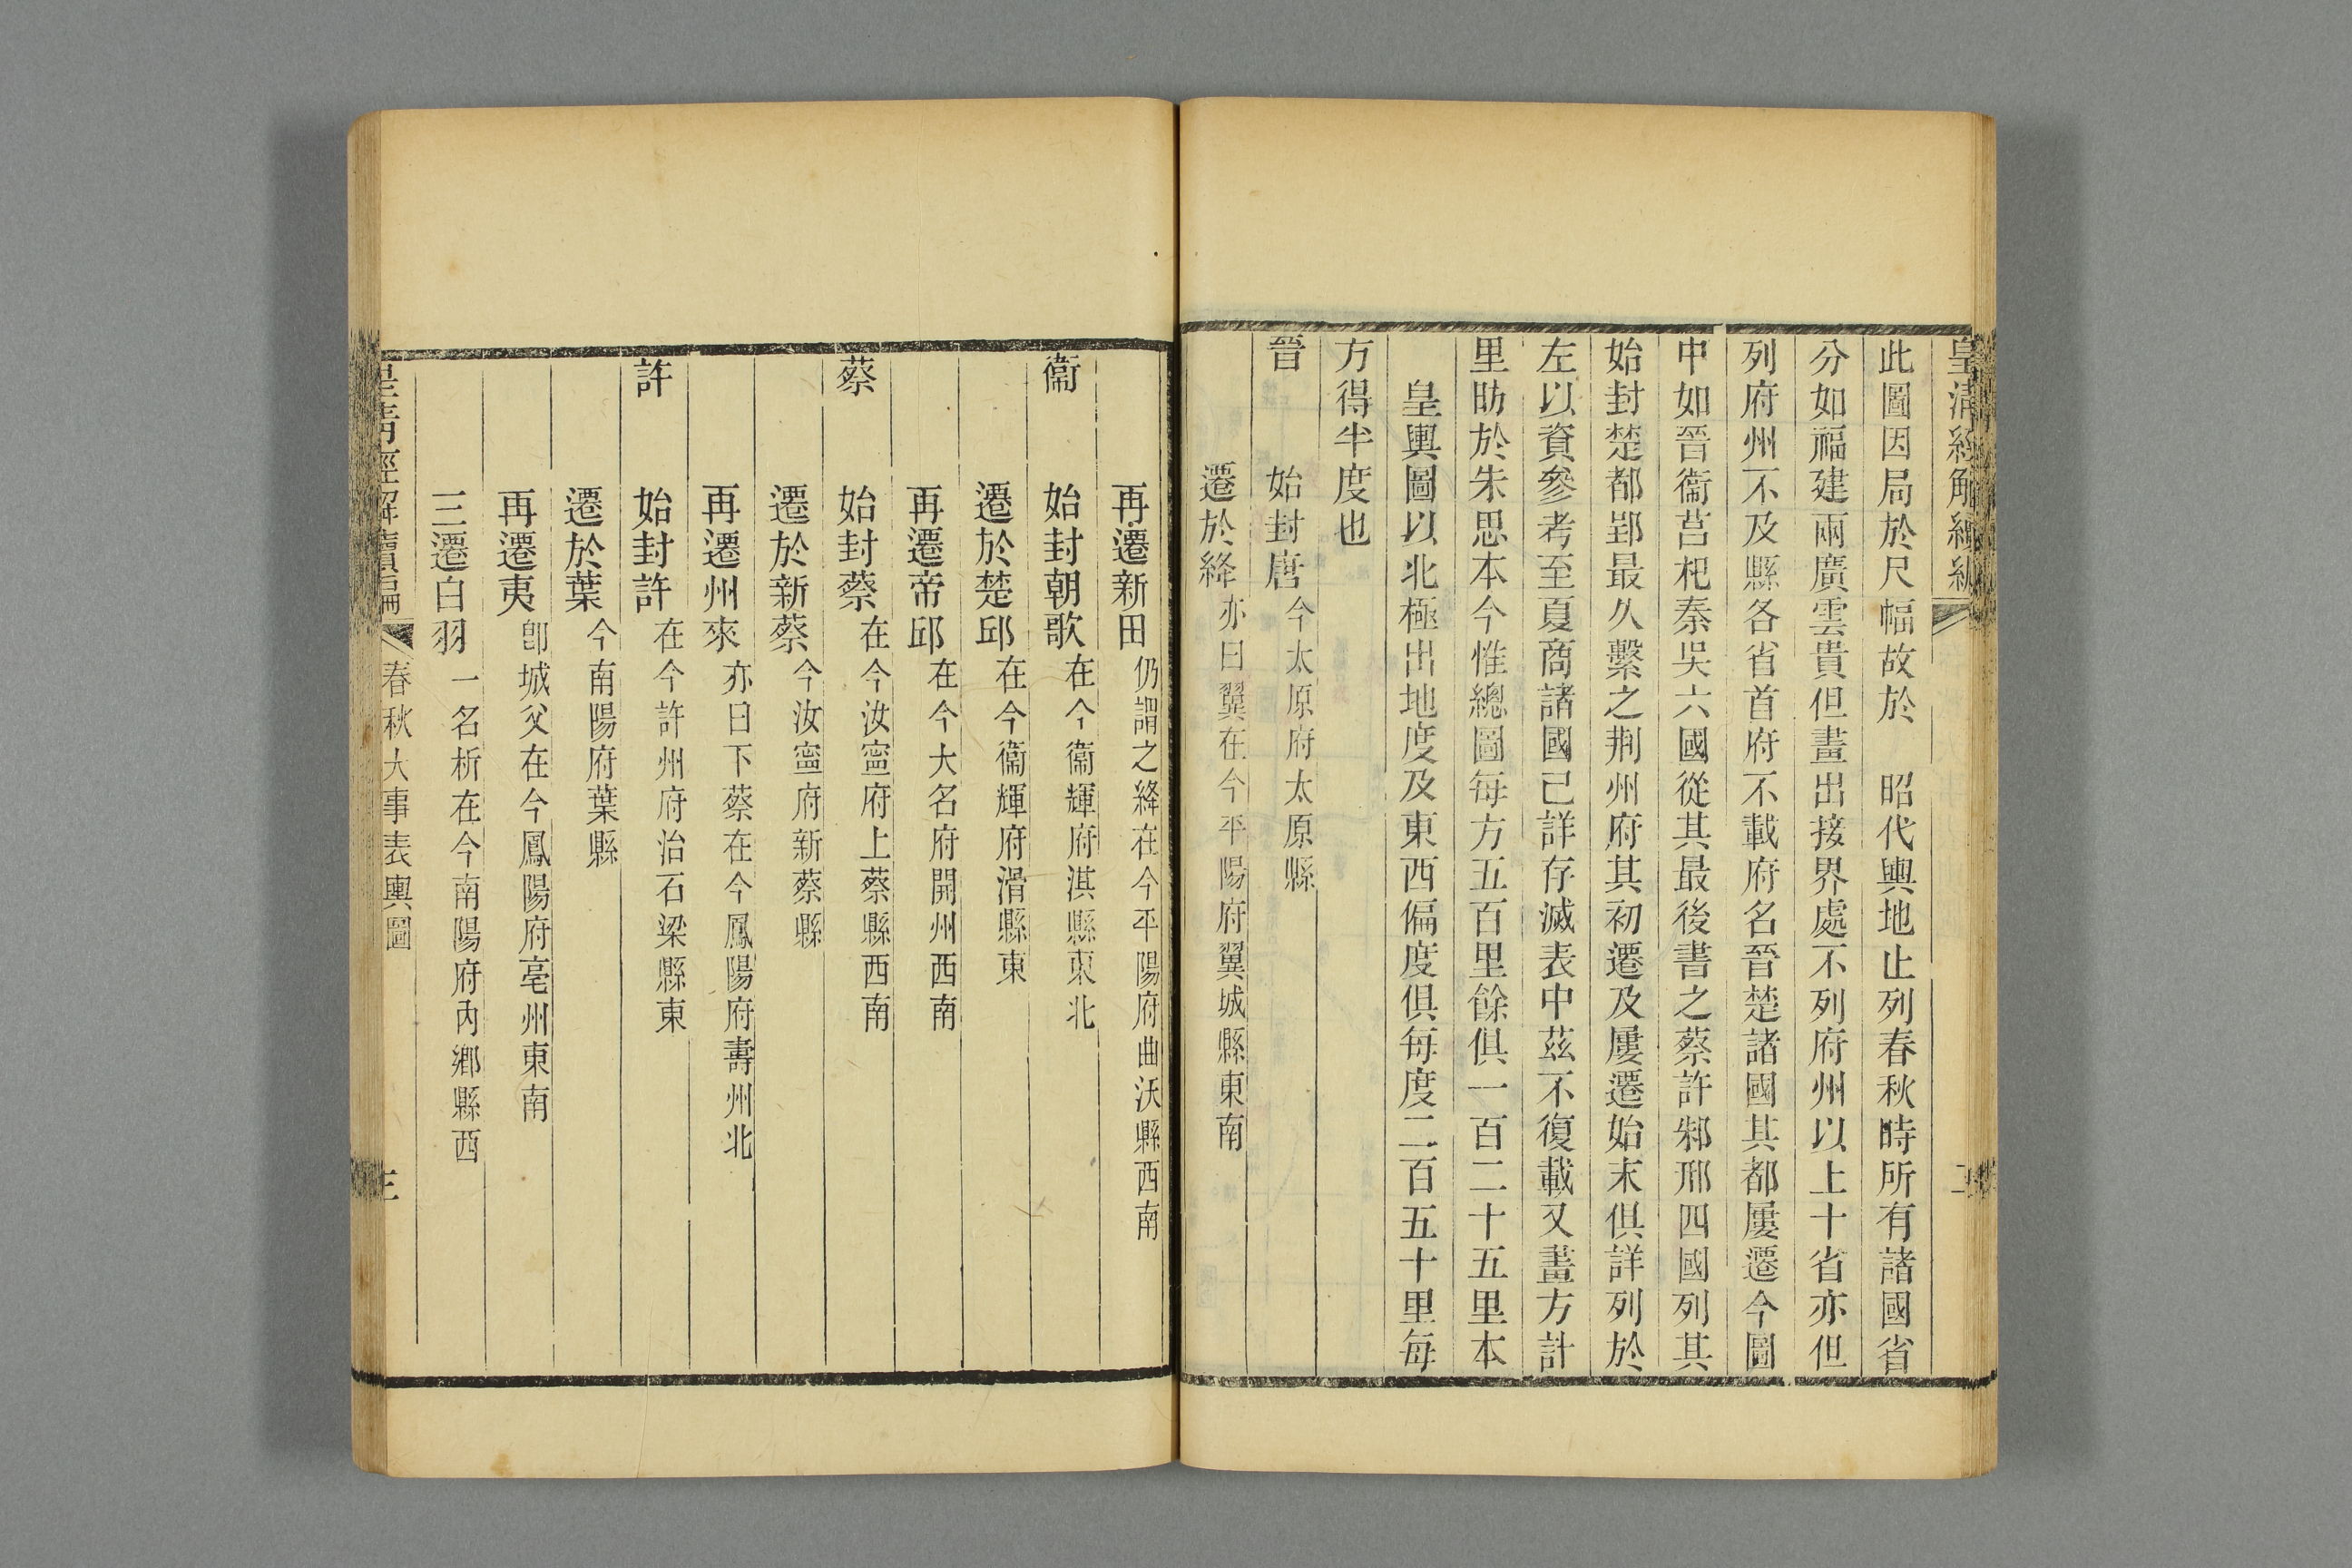 皇清經解續編
此圖因局於尺幅故於　昭代輿地止列春秋時所有諸國省
分如福建兩廣雲貴但畫出接界處不列府州以上十省亦但
列府州不及縣各省首府不載府名晉楚諸國其都屢遷今圖
中如晉衞莒杞秦吳六國從其最後書之蔡許邾邢四國列其
始封楚都郢最久繫之荆州府其初遷及屢遷始末俱詳列於
左以資參考至夏商諸國已詳存滅表中茲不復載又畫方計
里昉於朱思本今惟總圖每方五百里餘俱一百二十五里本
皇輿圖以北極出地度及東西偏度俱每度二百五十里每
方得半度也
晉　始封唐今太原府太原縣
遷於絳亦曰翼在今平陽府翼城縣東南
再遷新田仍謂之絳在今平陽府曲沃縣西南
衞　始封朝歌在今衞輝府淇縣東北
遷於楚邱在今衞輝府滑縣東
再遷帝邱在今大名府開州西南
蔡　始封蔡在今汝寧府上蔡縣西南
遷於新蔡今汝寧府新蔡縣
再遷州來亦曰下蔡在今鳳陽府壽州北
許　始封許在今許州府治石梁縣東
遷於葉今南陽府葉縣
再遷夷卽城父在今鳳陽府亳州東南
三遷白羽一名析在今南陽府內鄉縣西
皇清經解續編　春秋大事表輿圖　三